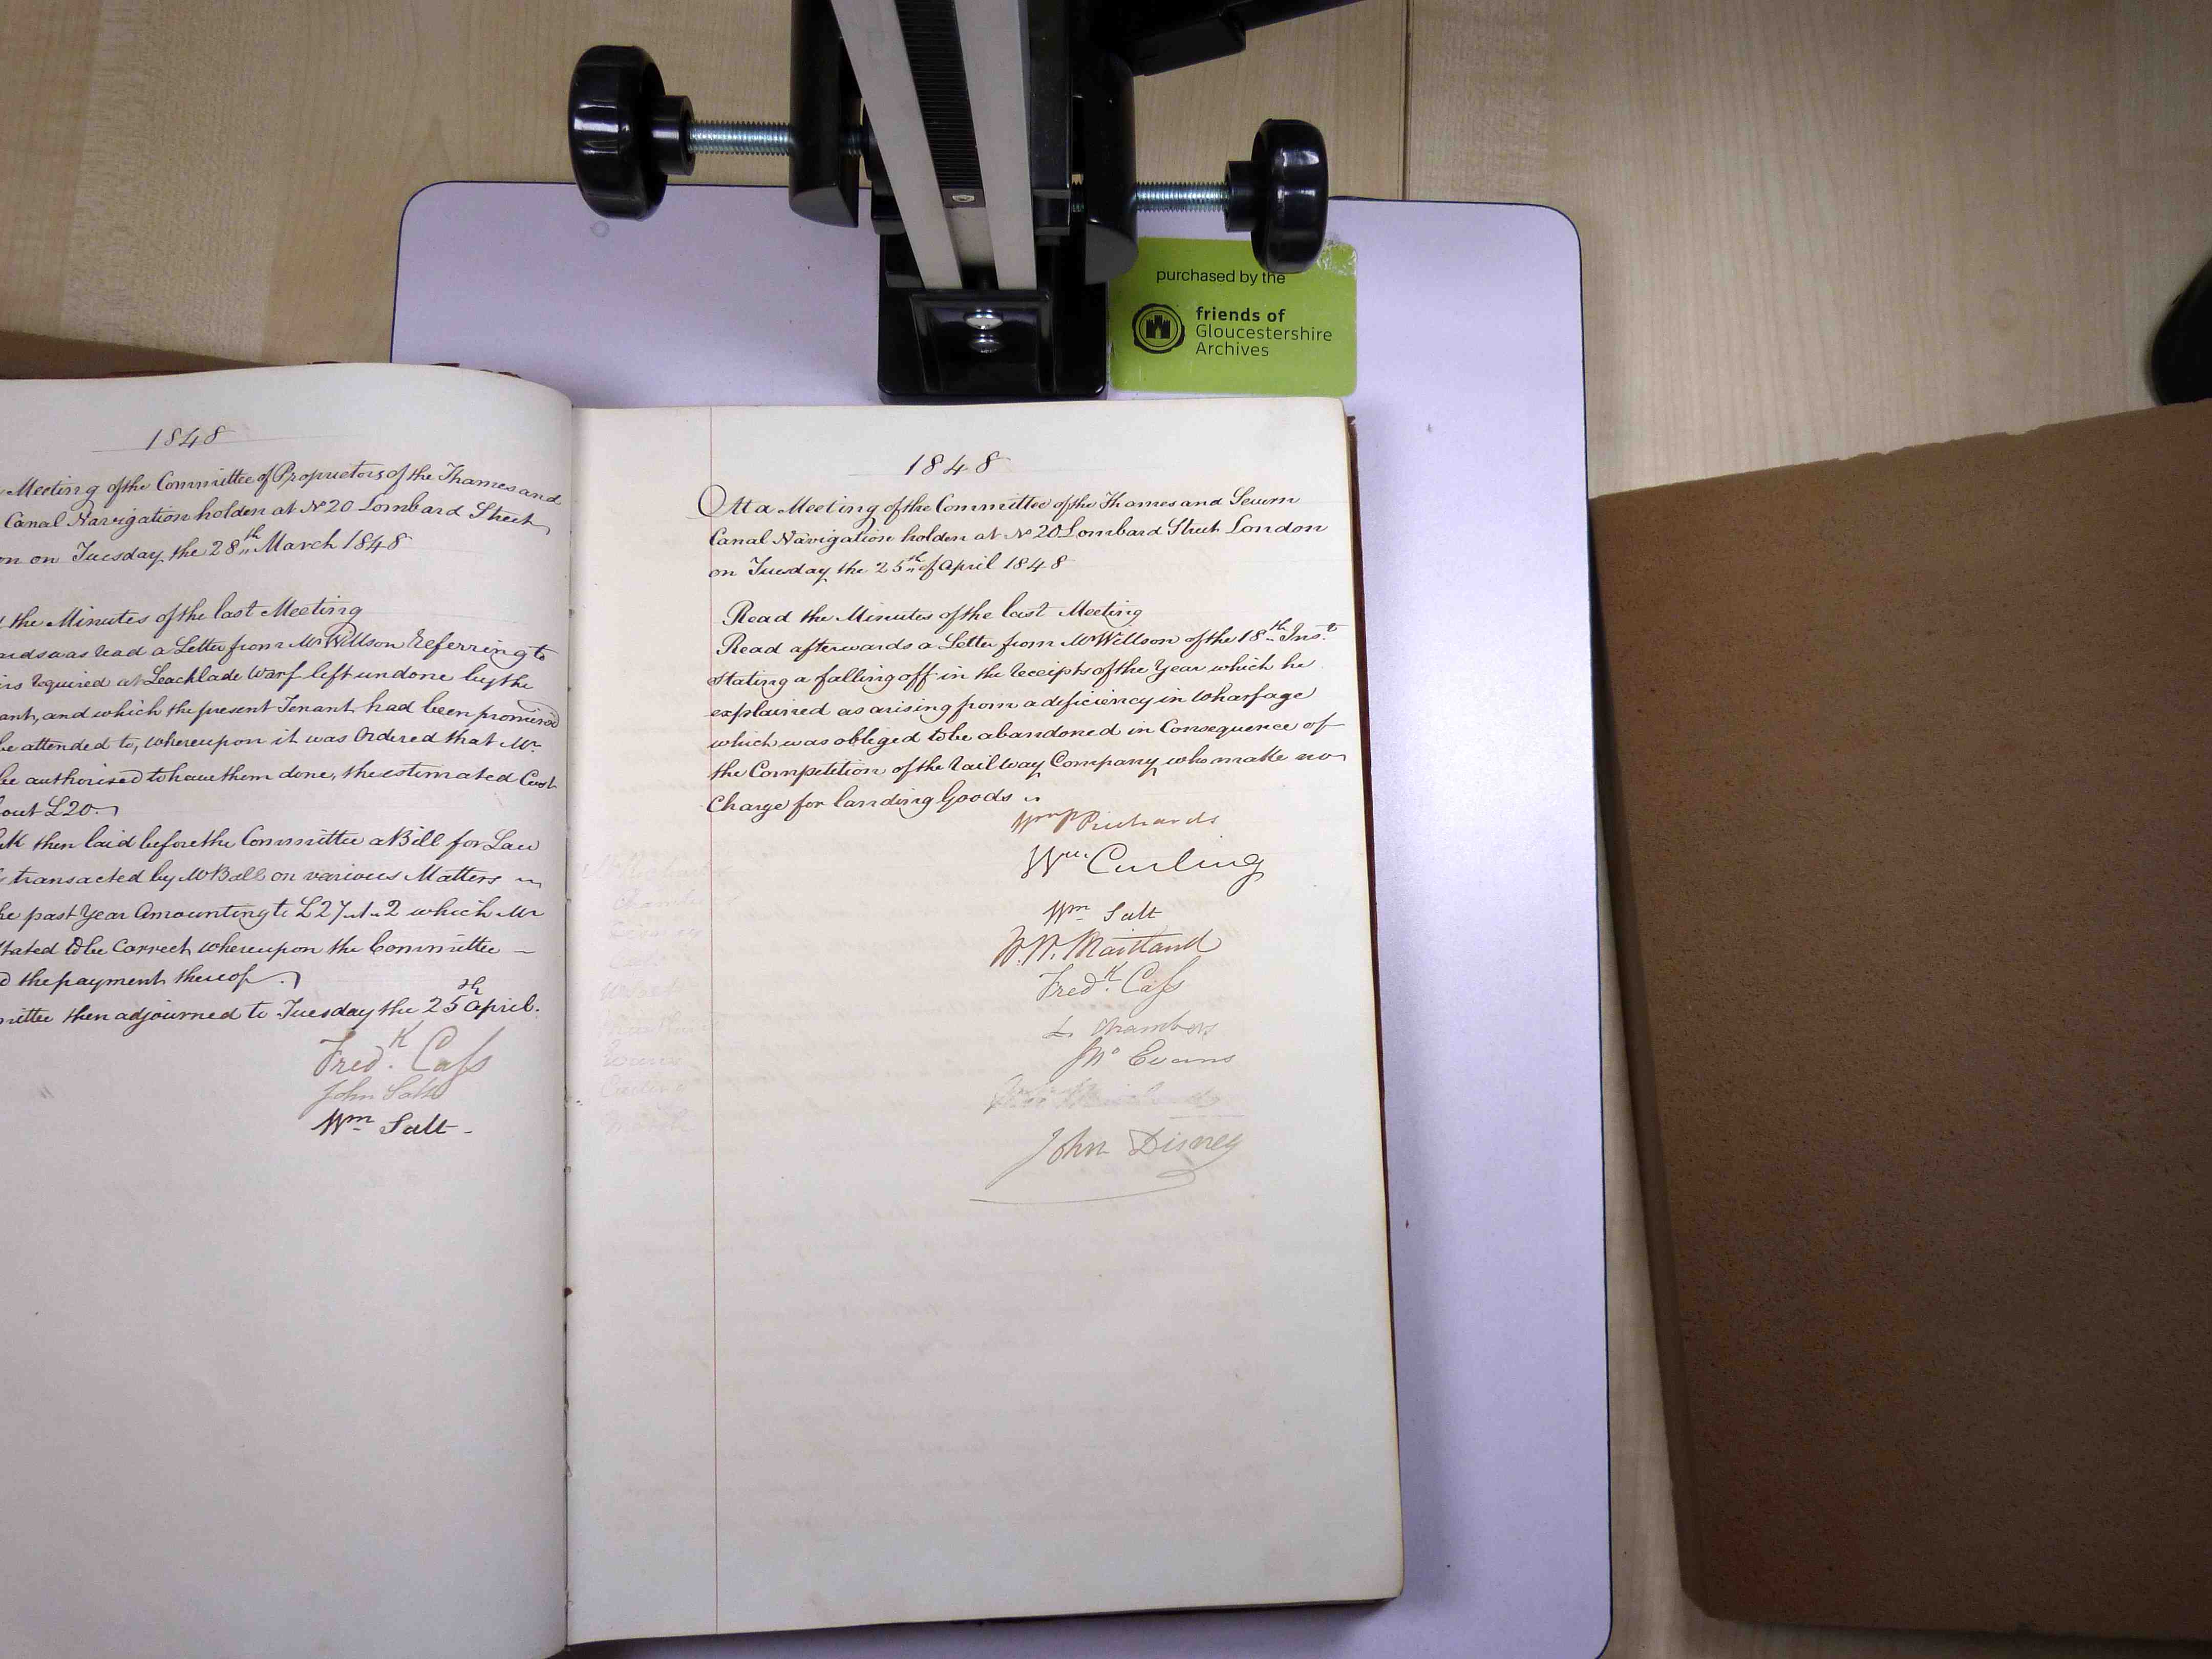 purchased by the
friends of
Gloucestershire
Archives
1848
Meeting of the Committee of Proprietors of the Thames and
Canal Navigation holden at No 20 Lombard Street
on on Tuesday the 28th March 1848
the Minutes of the last Meeting
ards was read a Letter from Mr Willson Referring to
irs required at Leachlade Warf left undone by the
ant, and which the present Tenant had been promised
be attended to, whereupon it was Ordered that Mr
be authorised to have them done, the estimated Cost
out £20.
then laid before the Committee a Bill for Law
transacted by Mr Ball on various Matters
he past Year Amounting to £27.1.2 which Mr
stated to be Correct whereupon the Committee
d the payment thereof.
mittee then adjourned to Tuesday the 25th April.
Fredk. Cass
John Salt
Wm Salt
1848
At a Meeting of the Committee of the Thames and Severn
Canal Navigation holden at No 20 Lombard Street London
on Tuesday the 25th of April 1848
Read the Minutes of the last Meeting
Read afterwards a Letter from Mr Willson of the 18th Inst
stating a falling off in the receipts of the Year which he
explained as arising from a deficiency in Wharfage
which was obleged to be abandoned in Consequence of
the Competition of the Railway Company who make no
Charge for landing Goods
Wm P Richards
Wm Curling
Wm Salt
Maitland
Fredk. Cass
Chambers
Jno Evans
John Disney